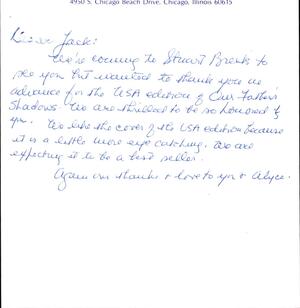 4950 S. Chicago Beach Drive, Chicago, Illinois 60615
Jack:
We're coming to Stuart Brents to
see you but wanted to thank you in
advance for the USA edition of Our Father's
Shadows. We are thrilled to be so honored by
you. We like the cover of the USA edition because
it is a little more eye catching. We are
expecting it to be a best seller.
Again our thanks + love to you + Alyce.